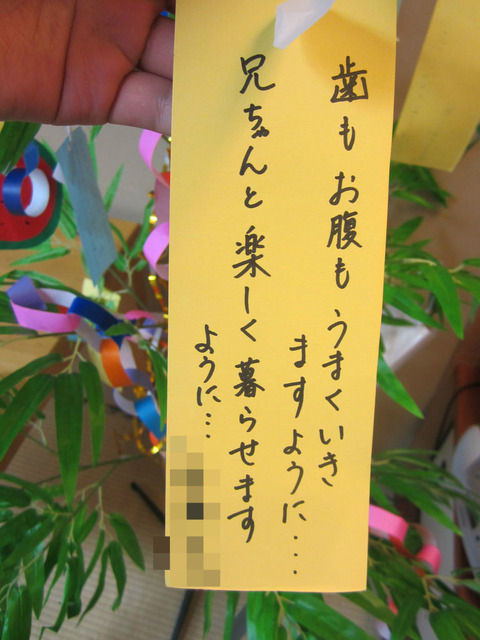 歯もお腹もうまくいき
ますように...
兄ちゃんと楽しく暮らせます
ように...